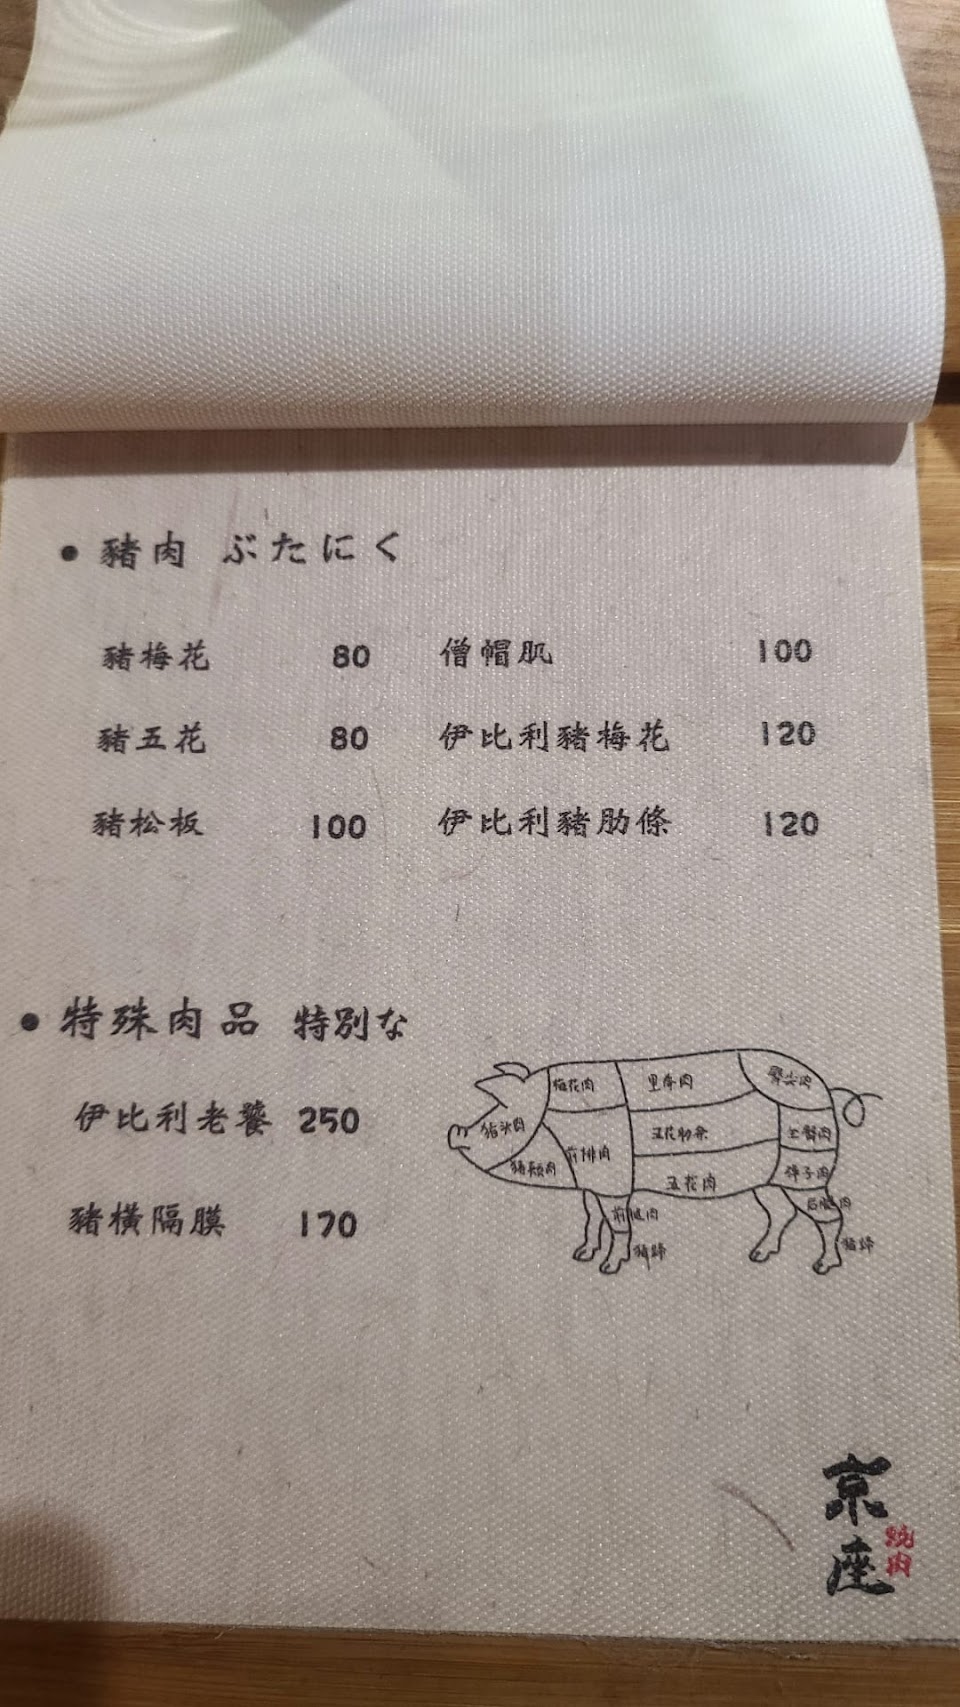 • 豬肉 ぶたにく
豬梅花 80 僧帽肌 100
豬五花 80 伊比利豬梅花 120
豬松板 100 伊比利豬肋條 120
• 特殊肉品 特別な
伊比利老饕 250
豬橫隔膜 170
梅花肉 里脊肉 臀尖肉
猪头肉 五花肋条 坐臀肉
猪颊肉 前排肉 五花肉 弹子肉
前腿肉 后腿肉
猪蹄 猪蹄
京座
燒肉